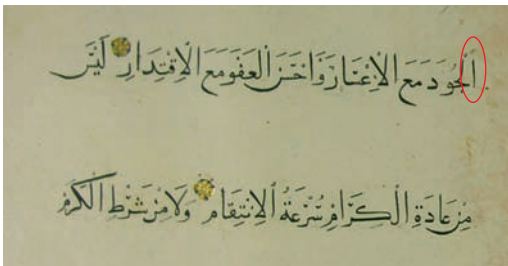 اَلْجُودَ مَعَ الْاِعْسَارِ وَاَحْسَنَ الْعَفْوِ مَعَ الْاِقْتِدَارِ لَيْسَ
مِنْ عَادَةِ الْكِرَامِ سُرْعَةُ الْاِنْتِقَامِ وَلَا مِنْ شَرْطِ الْكَرَمِ